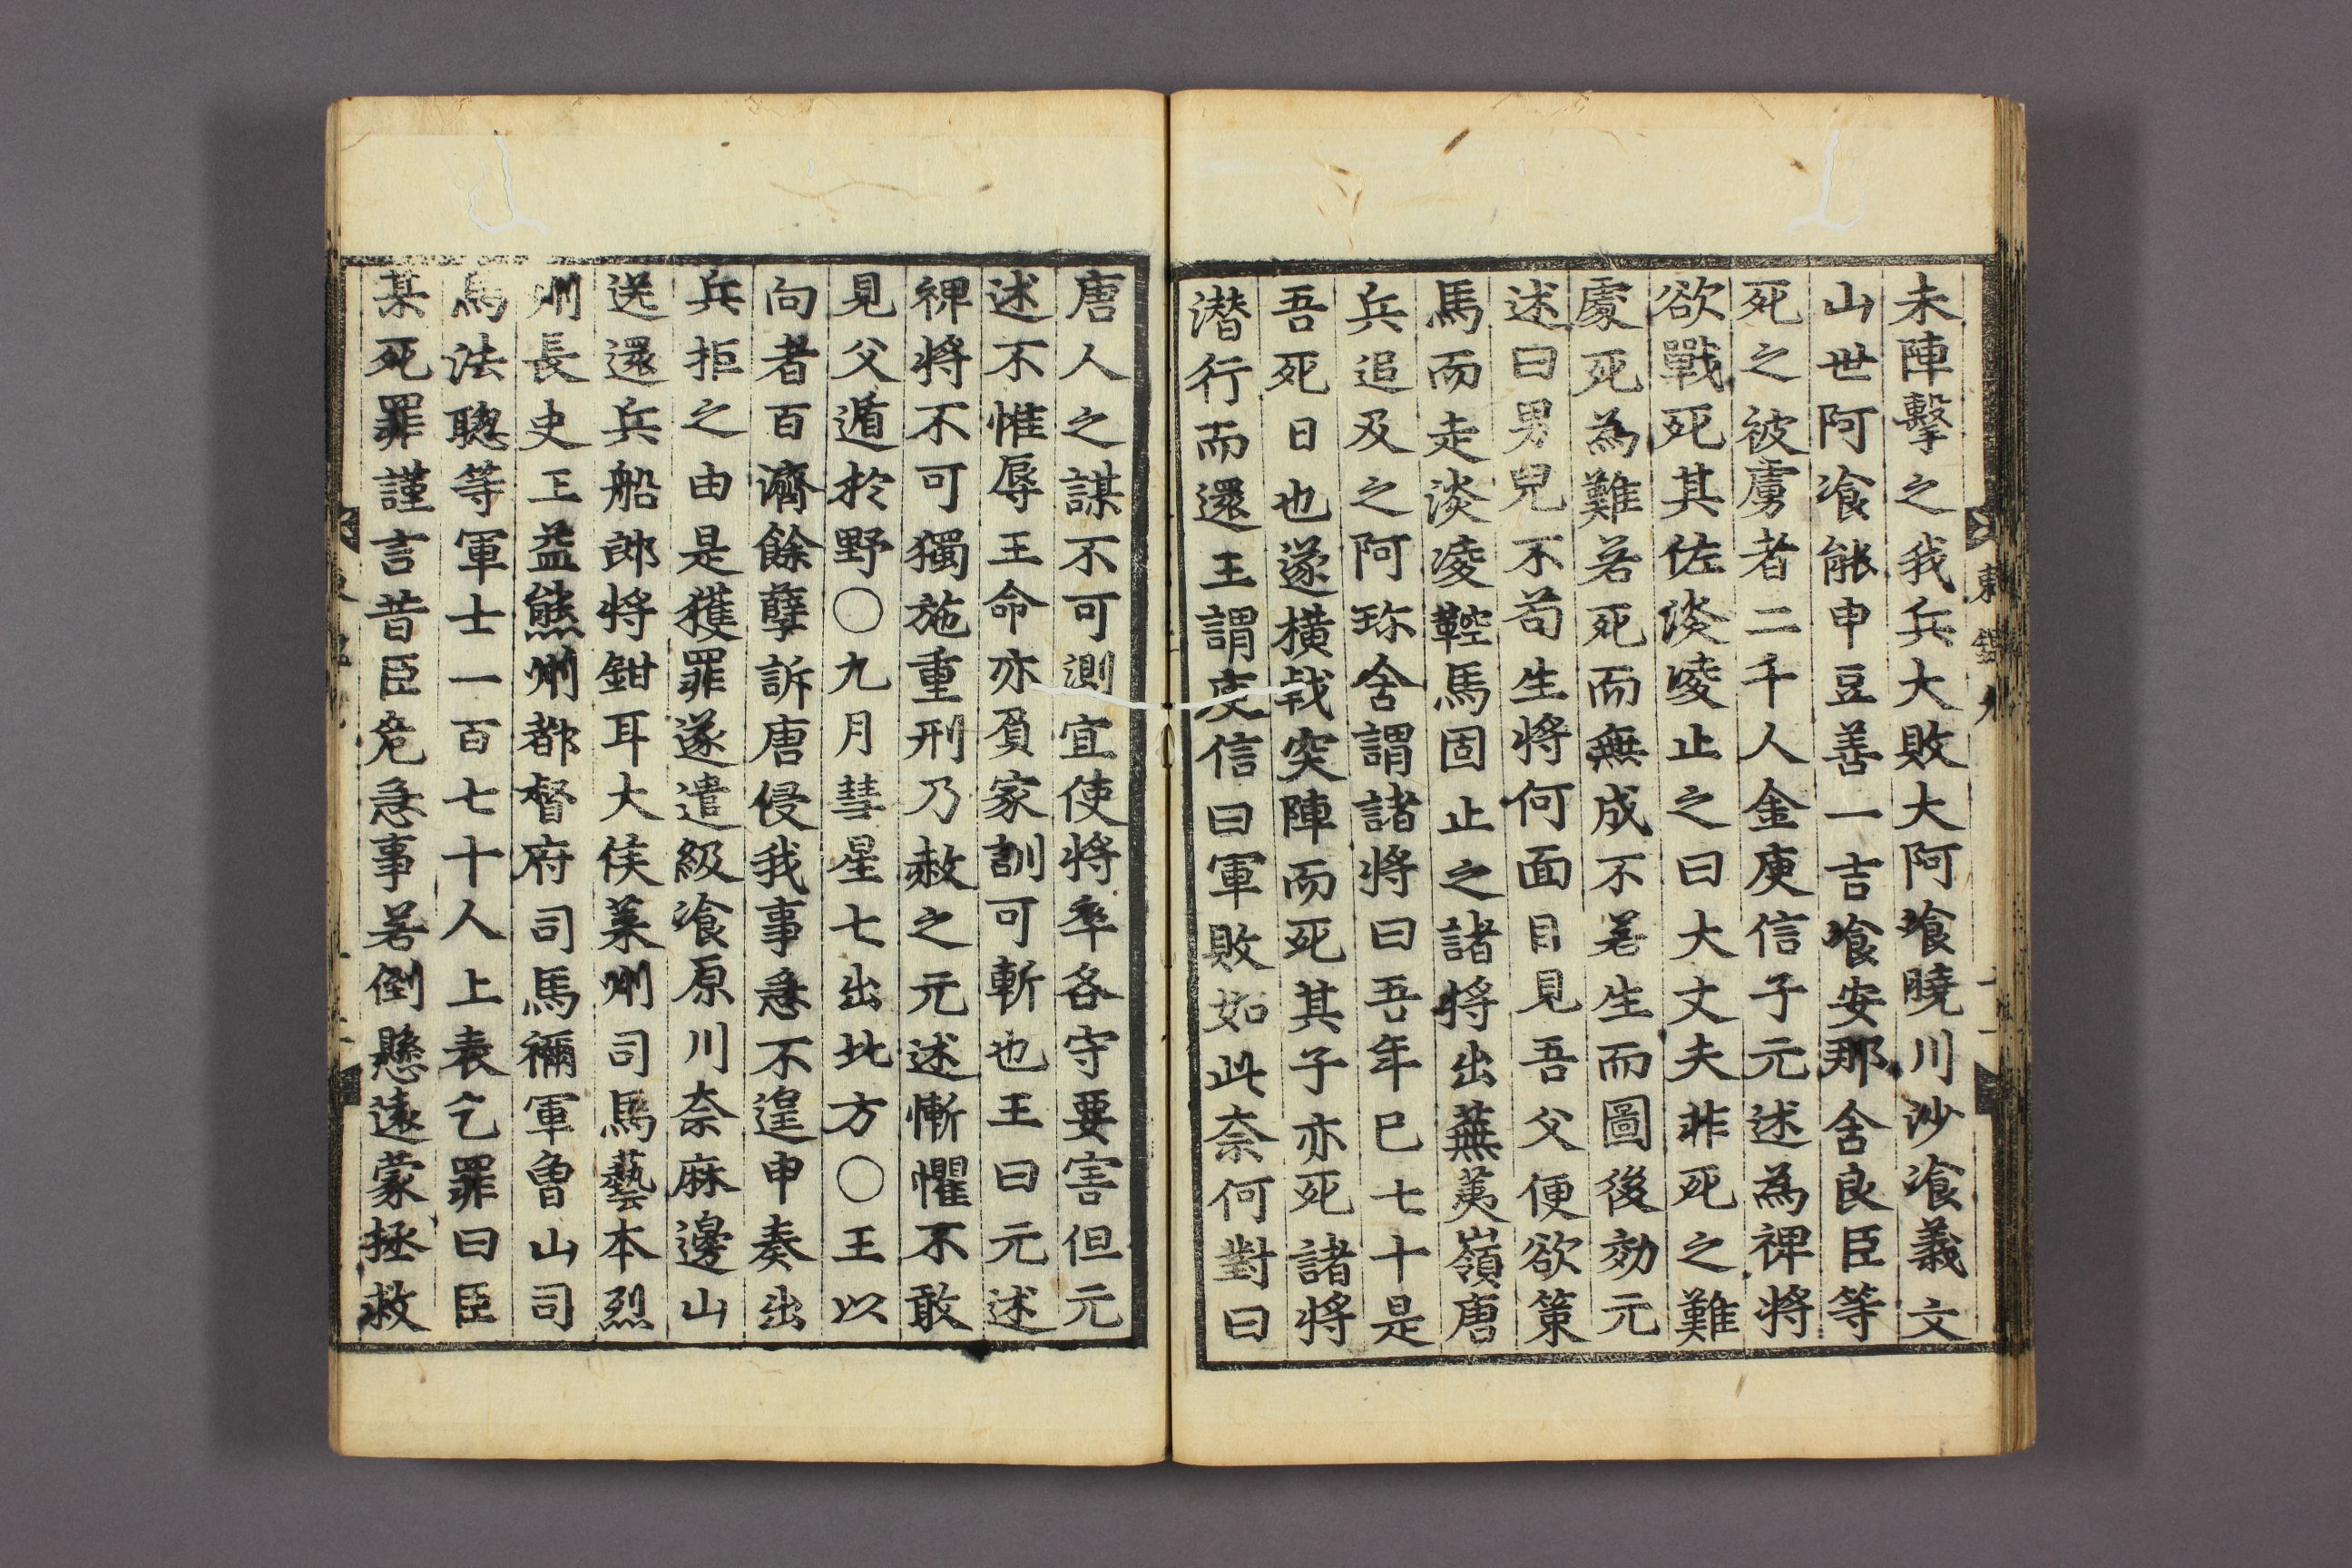 未陣擊之我兵大敗大阿飡曉川沙飡義文
山世阿飡能申豆善一吉飡安那含良臣等
死之被虜者二千人金庾信子元述為裨將
欲戰死其佐淡凌止之曰大丈夫非死之難
處死為難若死而無成不若生而圖後効元
述曰男兒不苟生將何面目見吾父便欲策
馬而走淡凌鞚馬固止之諸將出蕪荑嶺唐
兵追及之阿珎含謂諸將曰吾年已七十是
吾死日也遂橫戟突陣而死其子亦死諸將
潜行而還王謂庾信曰軍敗如此奈何對曰
唐人之謀不可測宜使將卒各守要害但元
述不惟辱王命亦負家訓可斬也王曰元述
裨將不可獨施重刑乃赦之元述慚懼不敢
見父遁於野〇九月彗星七出北方〇王以
向者百濟餘孽訴唐侵我事急不遑申奏出
兵拒之由是獲罪遂遣級飡原川奈麻邊山
送還兵船郎將鉗耳大侯萊州司馬藝本烈
州長史王益熊州都督府司馬禰軍曾山司
馬法聰等軍士一百七十人上表乞罪曰臣
某死罪謹言昔臣危急事若倒懸遠蒙拯救